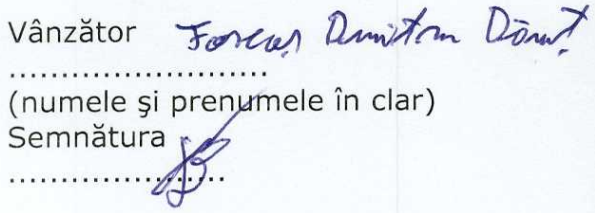 Vânzător Farcaș Dumitru Dănuț
..........................
(numele şi prenumele în clar)
Semnătura
......................